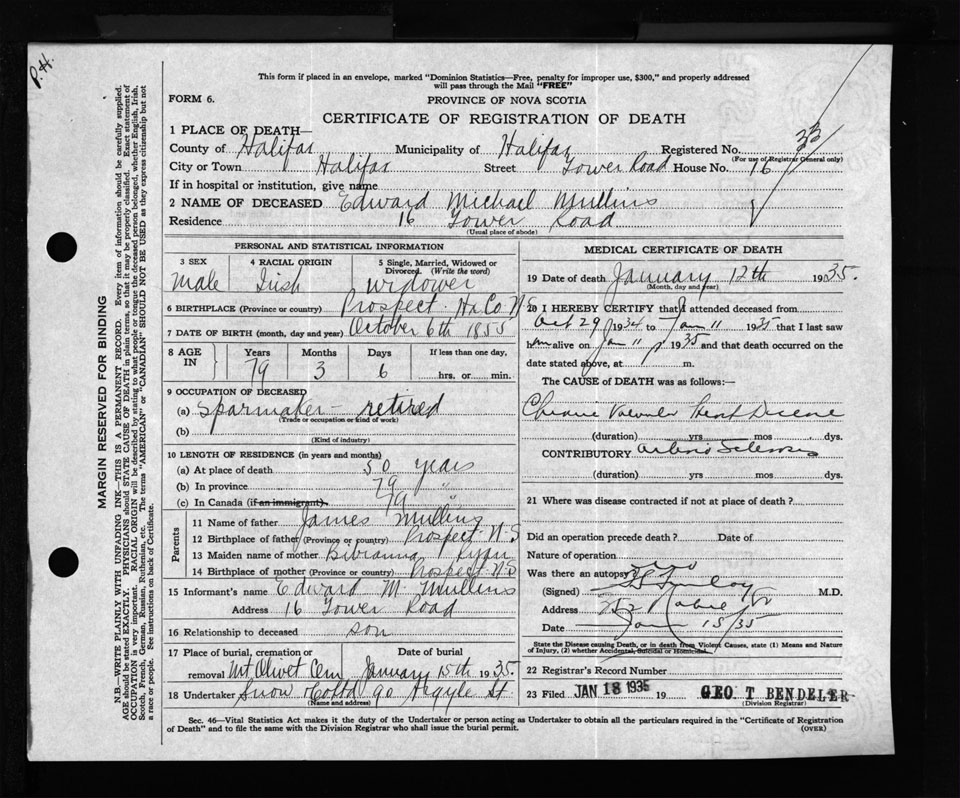 P.H.
This form if placed in an envelope, marked "Dominion Statistics—Free, penalty for improper use, $300," and properly addressed
will pass through the Mail "FREE"
FORM 6.
PROVINCE OF NOVA SCOTIA
CERTIFICATE OF REGISTRATION OF DEATH
1 PLACE OF DEATH—
County of Halifax Municipality of Halifax Registered No. 33
(For use of Registrar General only)
City or Town Halifax Street Tower Road House No. 16
If in hospital or institution, give name
2 NAME OF DECEASED Edward Michael Mullins
Residence 16 Tower Road
(Usual place of abode)
PERSONAL AND STATISTICAL INFORMATION
3 SEX 4 RACIAL ORIGIN 5 Single, Married, Widowed or
Divorced. (Write the word)
Male Irish widower
6 BIRTHPLACE (Province or country) Prospect Hx Co N.S
7 DATE OF BIRTH (month, day and year) October 6th 1855
8 AGE IN Years Months Days If less than one day,
79 3 6 hrs. or min.
9 OCCUPATION OF DECEASED
(a) Sparmaker - retired
(Trade or occupation or kind of work)
(b)
(Kind of industry)
10 LENGTH OF RESIDENCE (in years and months)
(a) At place of death 50 years
(b) In province 79 "
(c) In Canada (if an immigrant) 79 "
Parents
11 Name of father James Mullins
12 Birthplace of father (Province or country) Prospect N.S
13 Maiden name of mother Bibianna Ryan
14 Birthplace of mother (Province or country) Prospect N.S
15 Informant's name Edward M Mullins
Address 16 Tower Road
16 Relationship to deceased son
17 Place of burial, cremation or Date of burial
removal Mt Olivet Cem January 15th 1935.
18 Undertaker Snow & Co Ltd 90 Argyle St.
(Name and address)
MEDICAL CERTIFICATE OF DEATH
19 Date of death January 12th 1935.
(Month, day and year)
20 I HEREBY CERTIFY that I attended deceased from
Oct 29 1934 to Jan 11 1935 that I last saw
him alive on Jan 11 1935 and that death occurred on the
date stated above, at m.
The CAUSE of DEATH was as follows:—
Chronic Valvular Heart Disease
(duration) yrs mos dys.
CONTRIBUTORY Arterio Sclerosis
(duration) yrs. mos. dys.
21 Where was disease contracted if not at place of death?
Did an operation precede death? Date of
Nature of operation
Was there an autopsy
(Signed) M.D.
Address
Date Jan 15/35
State the Disease causing Death, or in death from Violent Causes, state (1) Means and Nature
of Injury, (2) whether Accidental, Suicidal or Homicidal.
22 Registrar's Record Number
23 Filed JAN 18 1935 19 GEO. T BENDELER
(Division Registrar)
Sec. 46—Vital Statistics Act makes it the duty of the Undertaker or person acting as Undertaker to obtain all the particulars required in the "Certificate of Registration
of Death" and to file the same with the Division Registrar who shall issue the burial permit. (OVER)
MARGIN RESERVED FOR BINDING
N.B.—WRITE PLAINLY WITH UNFADING INK—THIS IS A PERMANENT RECORD. Every item of information should be carefully supplied.
AGE should be stated EXACTLY. PHYSICIANS should STATE CAUSE OF DEATH in plain terms, so that it may be properly classified. Exact statement of
OCCUPATION is very important. RACIAL ORIGIN will be described by stating to what people or tongue the deceased person belonged, whether English, Irish,
Scotch, French, German, Russian, Ruthenian, etc. The terms "AMERICAN" or "CANADIAN" SHOULD NOT BE USED as they express citizenship but not
a race or people. See instructions on back of Certificate.